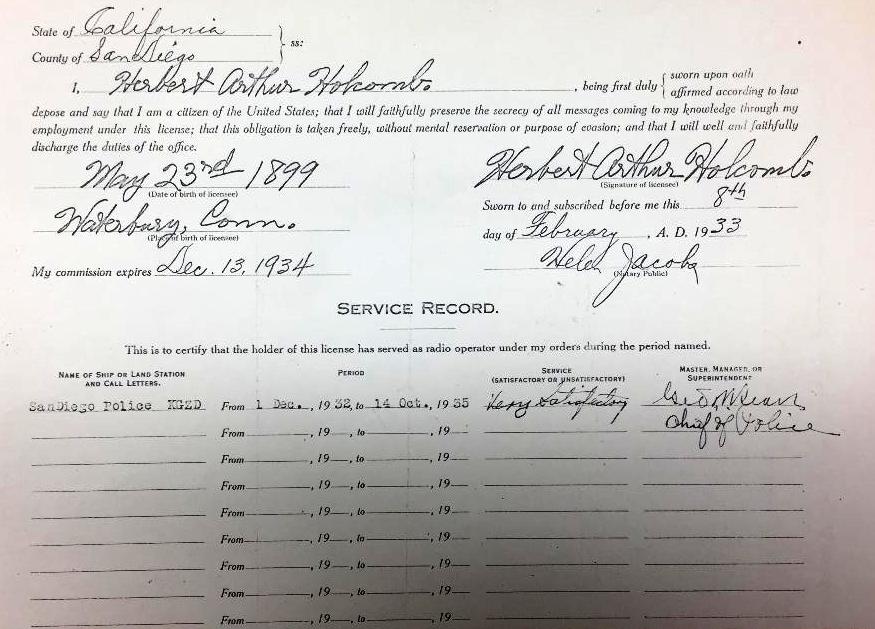 State of California
County of San Diego
ss:
I, Herbert Arthur Holcomb. , being first duly { sworn upon oath
affirmed according to law
depose and say that I am a citizen of the United States; that I will faithfully preserve the secrecy of all messages coming to my knowledge through my
employment under this license; that this obligation is taken freely, without mental reservation or purpose of evasion; and that I will well and faithfully
discharge the duties of the office.
May 23rd 1899
(Date of birth of licensee)
Herbert Arthur Holcomb.
(Signature of licensee)
Waterbury, Conn.
(Place of birth of licensee)
Sworn to and subscribed before me this 8th
day of February , A. D. 1933
My commission expires Dec. 13, 1934
Helen Jacobs
(Notary Public)
SERVICE RECORD.
This is to certify that the holder of this license has served as radio operator under my orders during the period named.
NAME OF SHIP OR LAND STATION
AND CALL LETTERS.
PERIOD
SERVICE
(SATISFACTORY OR UNSATISFACTORY)
MASTER, MANAGER, OR
SUPERINTENDENT
SanDiego Police KGZD From 1 Dec., 1932, to 14 Oct., 1935 Very Satisfactory Geo M Sears
Chief of Police
From , 19 , to , 19
From , 19 , to , 19
From , 19 , to , 19
From , 19 , to , 19
From , 19 , to , 19
From , 19 , to , 19
From , 19 , to , 19
From , 19 , to , 19